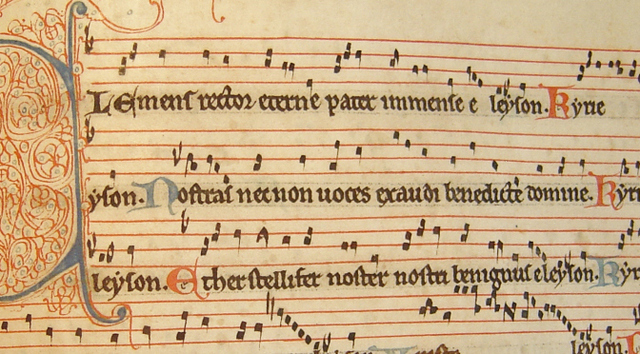 LEmens rector eterne pater immense e leyson. Kyrie
yson. Nostras necnon uoces exaudi benedicte domine. Kyri
leyson. Ether stellifer noster nostri benignus eleyson. Kyr
leyson.